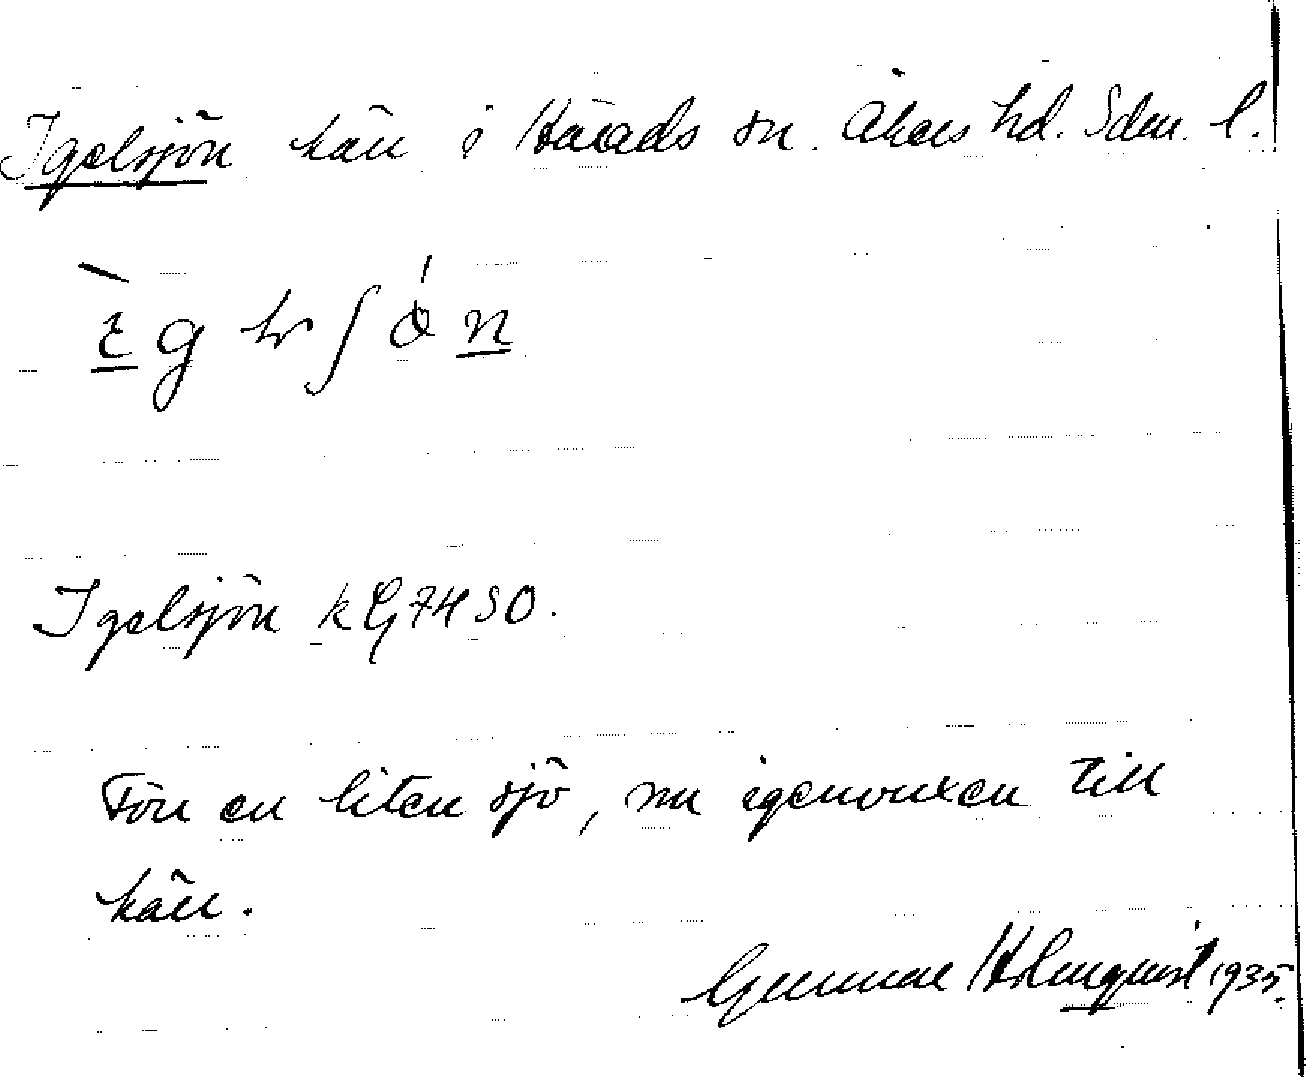 Igelsjön kärr i Härads sn. Åkers hd. Sdm. l.
Igelsjön kG 74 SO.
Förr en liten sjö, nu igenvuxen till
kärr.
Gunnar Holmquist 1935.